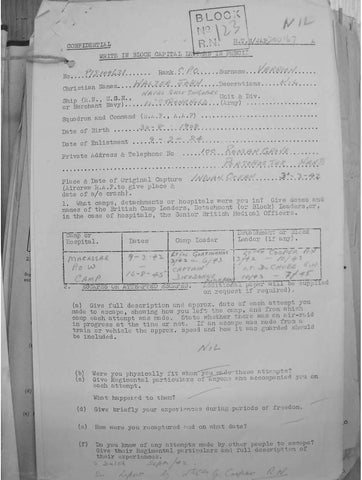 BLOCK
No 123
R.N.
NIL
CONFIDENTIAL
WRITE IN BLOCK CAPITAL LETTERS IN PENCIL
No. Rank C.P.O. Surname VERDON
Christian Names WALTER JOHN Decorations NIL
Ship (R.N. U.S.N. Unit & Div.
or Merchant Navy) (Army)
Squadron and Command (R.A.F. R.A.A.F)
Date of Birth 1908
Date of Enlistment 24
Private Address & Telephone No
Place & Date of Original Capture INDIAN OCEAN 3-3-42
(Aircrew R.A.F. to give place &
date of a/c crash).
1. What camps, detachments or hospitals were you in? Give dates and
names of the British Camp Leaders, Detachment (or Block) Leaders, or,
in the case of hospitals, the Senior British Medical Officers.
Camp or Hospital. Dates Camp Leader Detachment or Block Leader (if any).
MACASSAR P.O.W CAMP
Additional paper will be supplied
on request if required).
(a) Give full description and approx. date of each attempt you
made to escape, showing how you left the camp, and from which
camp each attempt was made. State whether there was an air-raid
in progress at the time or not. If an escape was made from a
train or vehicle the approx. speed and how it was guarded should
be included.
NIL
(b) Were you physically fit when you made these attempts?
(c) Give Regimental particulars of anyone who accompanied you on
each attempt.
What happened to them?
(d) Give briefly your experiences during periods of freedom.
(e) How were you recaptured and on what date?
(f) Do you know of any attempts made by other people to escape?
Give their Regimental particulars and full description of
their experiences.